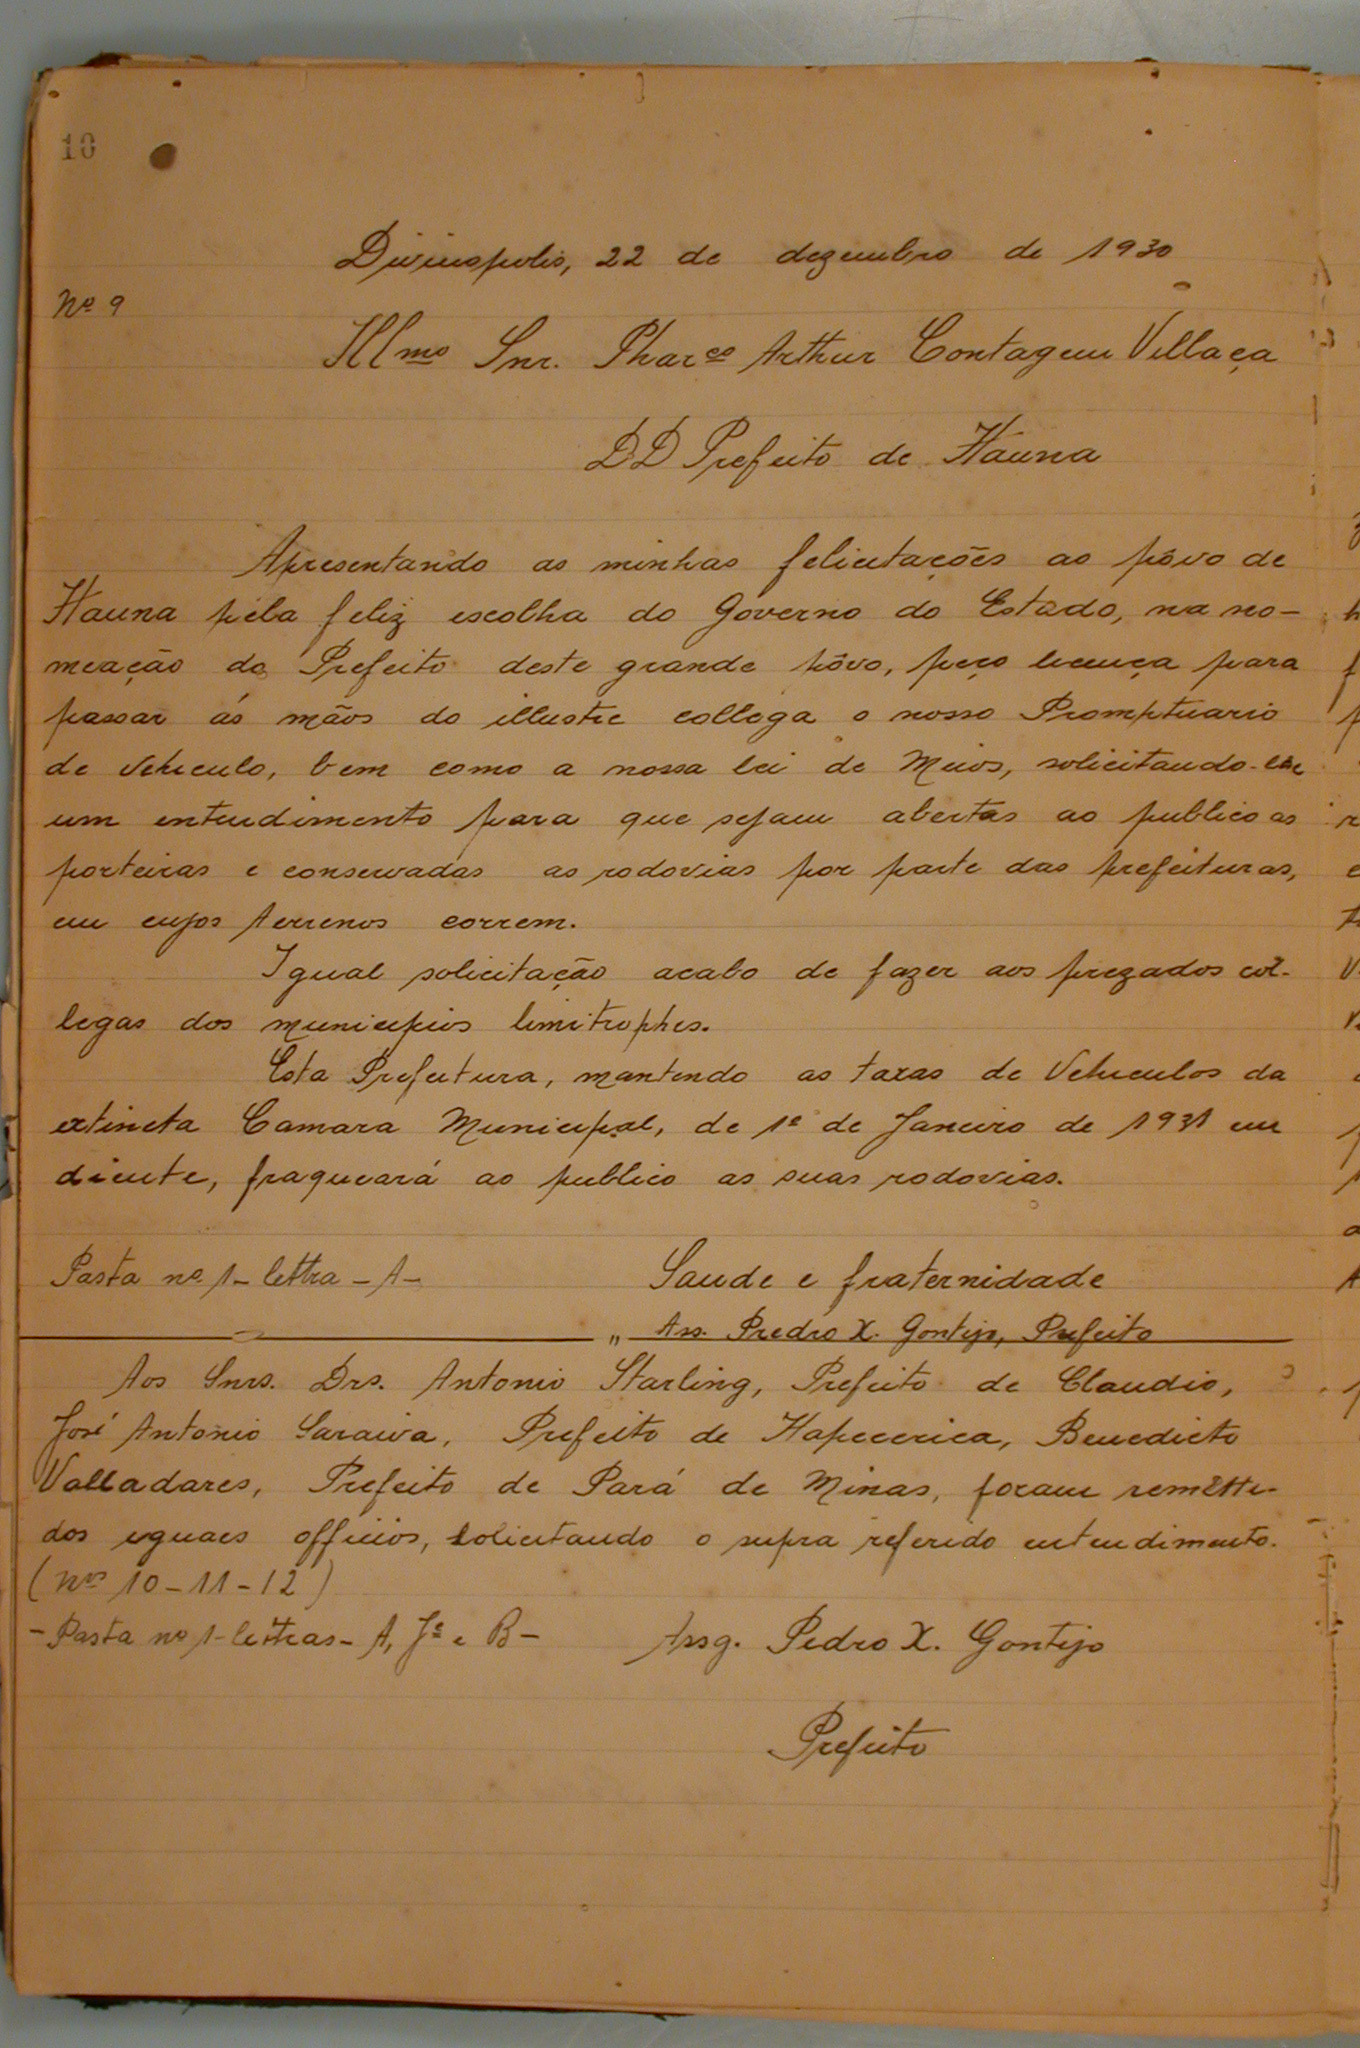 10
Divinopolis, 22 de dezembro de 1930
Nº 9
Illmo Snr. Pharco Arthur Contagem Villaça
DD Prefeito de Itauna
Apresentando as minhas felicitações ao pôvo de
Itauna pela feliz escolha do Governo do Estado, na no-
meação do Prefeito deste grande pôvo, peço licença para
passar ás mãos do illustre collega o nosso Promptuario
de Vehiculo, bem como a nossa lei de Meios, solicitando-lhe
um entendimento para que sejam abertas ao publico as
porteiras e conservadas as rodovias por parte das prefeituras,
em cujos terrenos correm.
Igual solicitação acabo de fazer aos prezados col-
legas dos municipios limitrophes.
Esta Prefeitura, mantendo as taxas de Vehiculos da
extincta Camara Municipal, de 1º de Janeiro de 1931 em
diente, fraqueará ao publico as suas rodovias.
Pasta nº 1- lettra - A-
Saude e fraternidade
" Ass. Predro X. Gontijo, Prefeito
Aos Snrs. Drs. Antonio Starling, Prefeito de Claudio,
José Antonio Saraiva, Prefeito de Itapecerica, Benedicto
Valladares, Prefeito de Pará de Minas, foram remetti-
dos iguaes officios, solicitando o supra referido entendimento.
(Nos 10-11-12)
- Pasta nº 1- lettras- A, Jé e B-
Assg. Pedro X. Gontijo
Prefeito